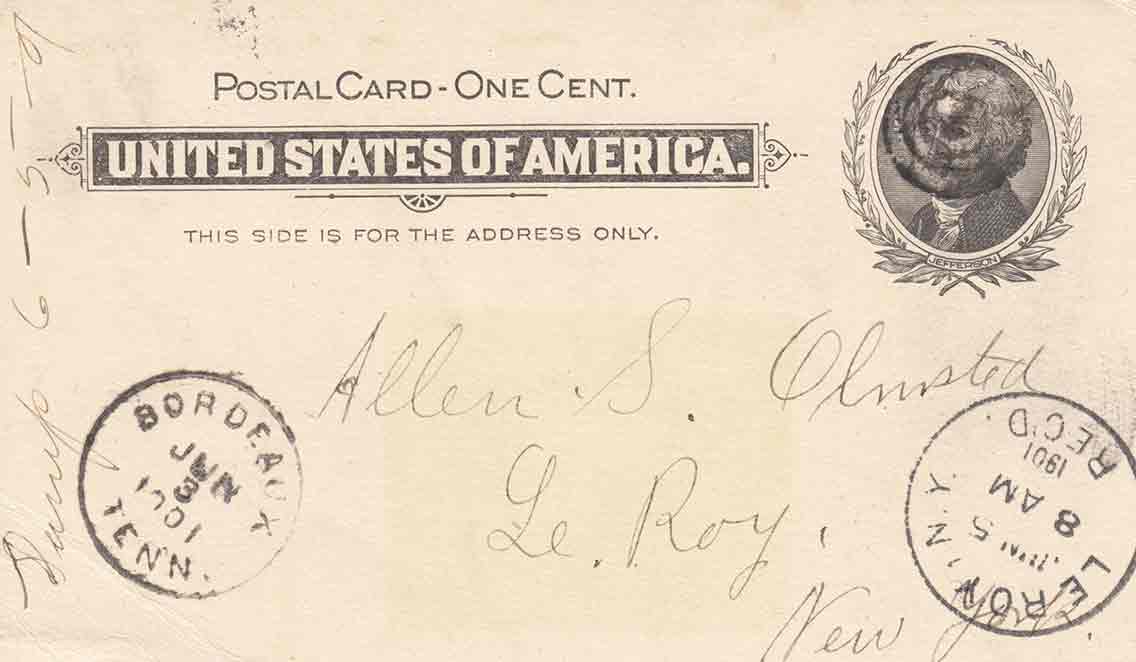 POSTAL CARD - ONE CENT.
UNITED STATES OF AMERICA.
THIS SIDE IS FOR THE ADDRESS ONLY.
JEFFERSON
Allen S. Olmsted
Le Roy,
New York.
BORDEAUX
JUN
3
1901
TENN.
LEROY, N.Y.
JUN 5
8 AM
1901
REC'D.
6-5-01